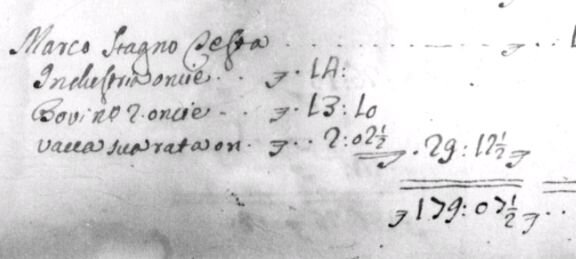 Marco Stagno Testa
Industria oncie . . 14:
Bovi n.º 2. oncie . . 13:10
vacca sua rata on . 2:02½ . 29:12½
179:07½